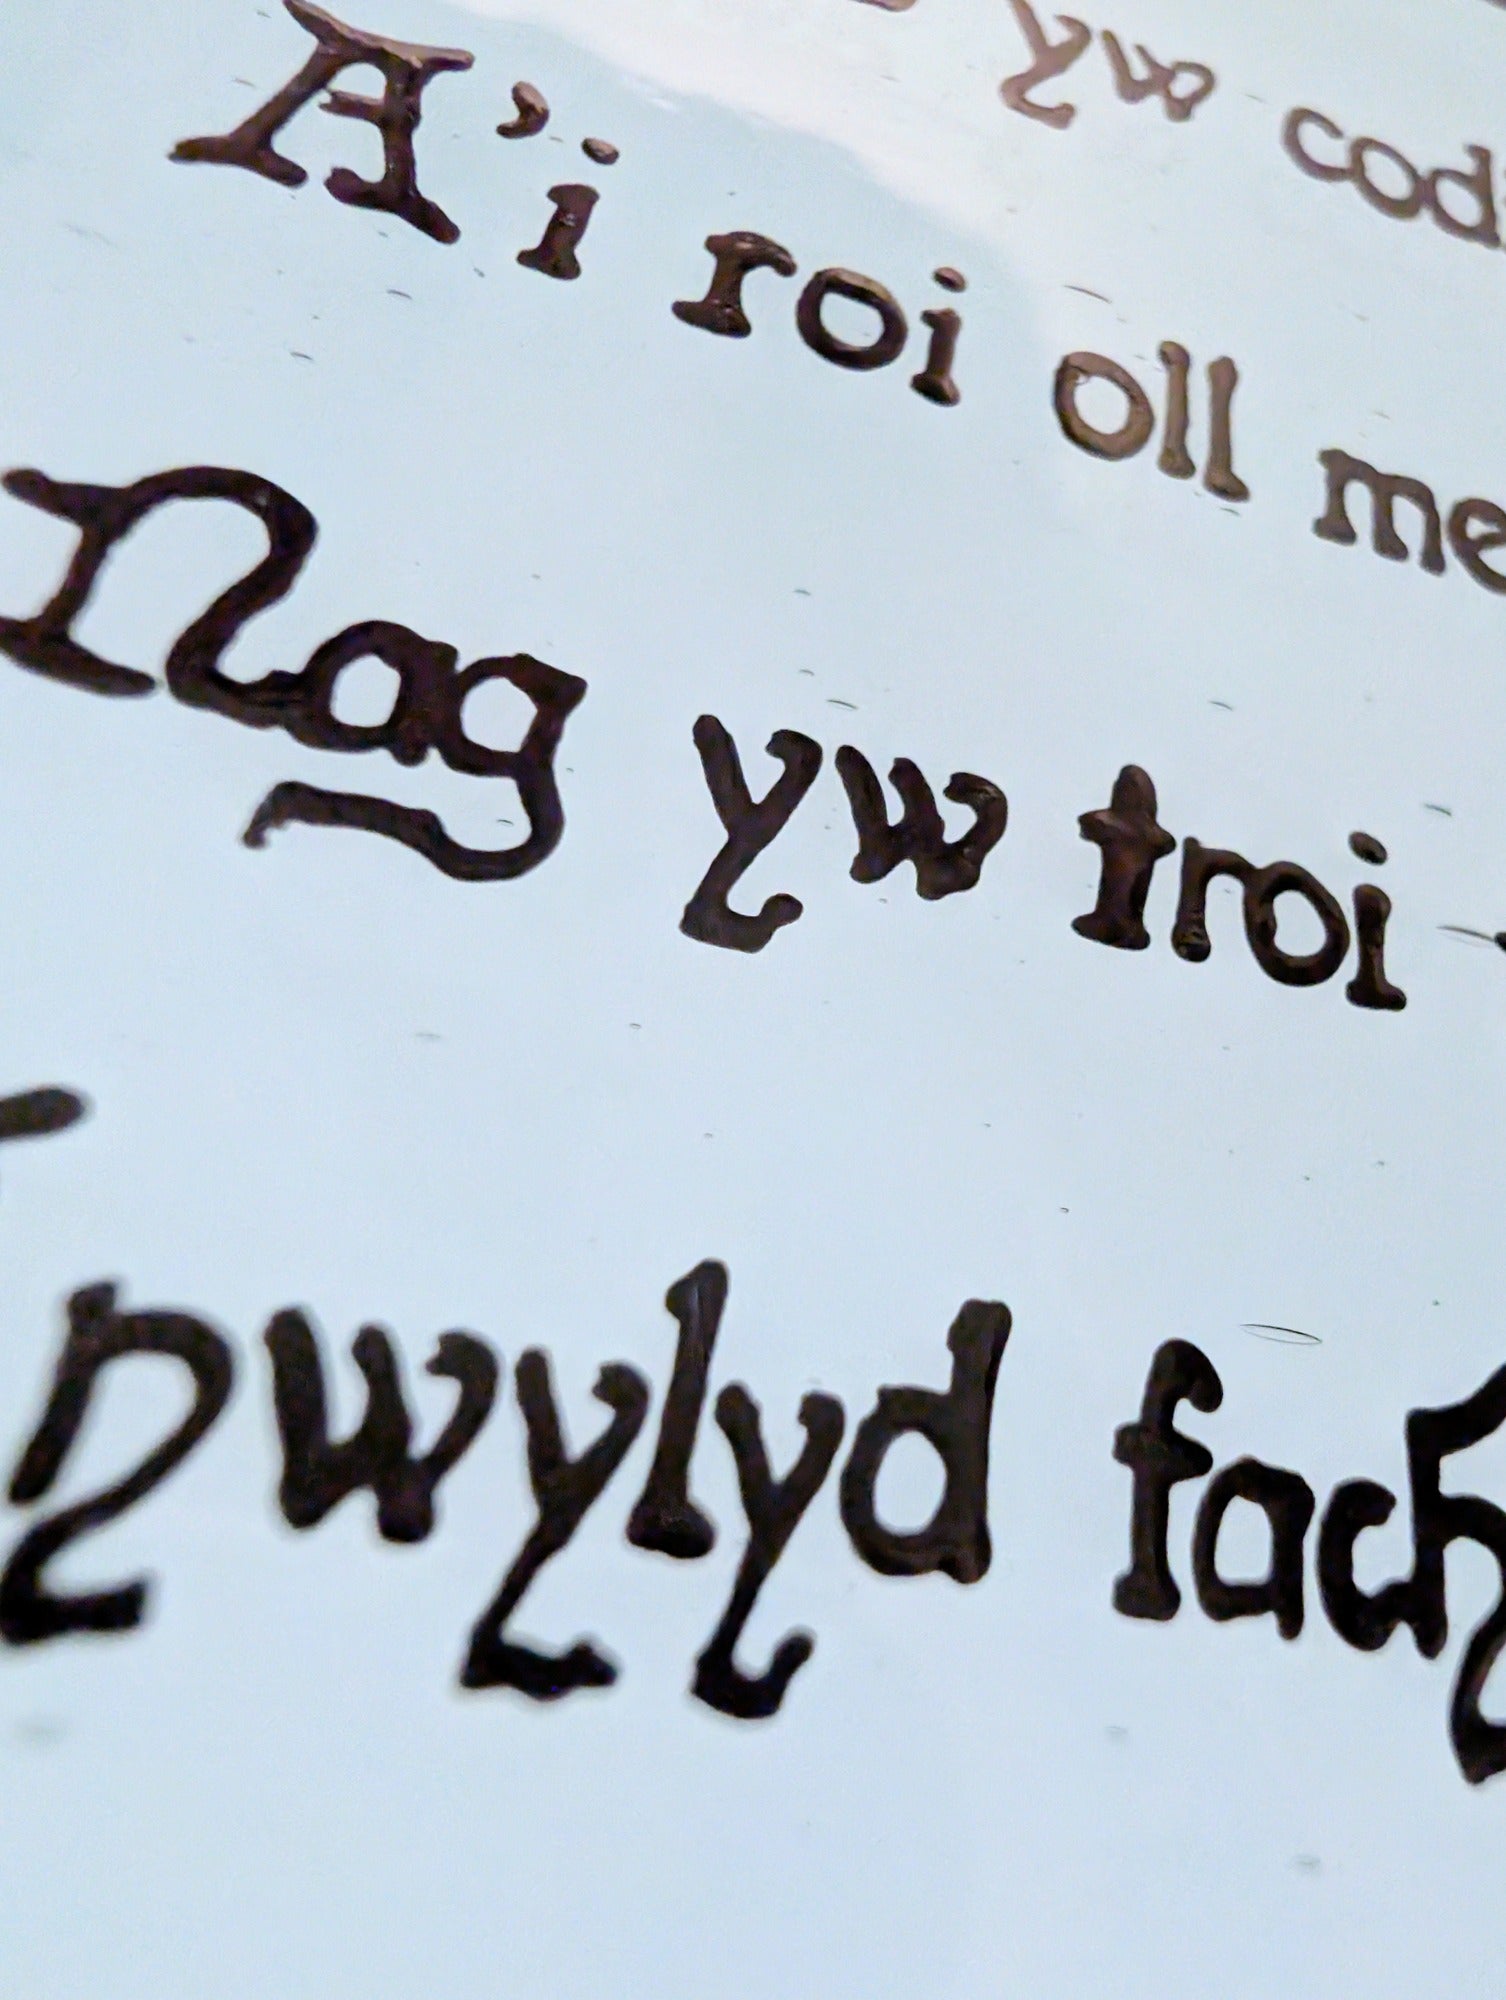 yw codi
A'i roi oll me
Nag yw troi
Pwylyd fach